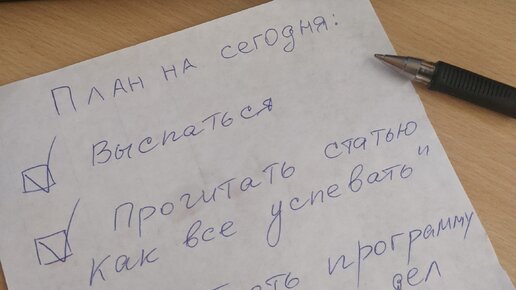 План на сегодня:
Выспаться
Прочитать статью
как все успевать"
программу